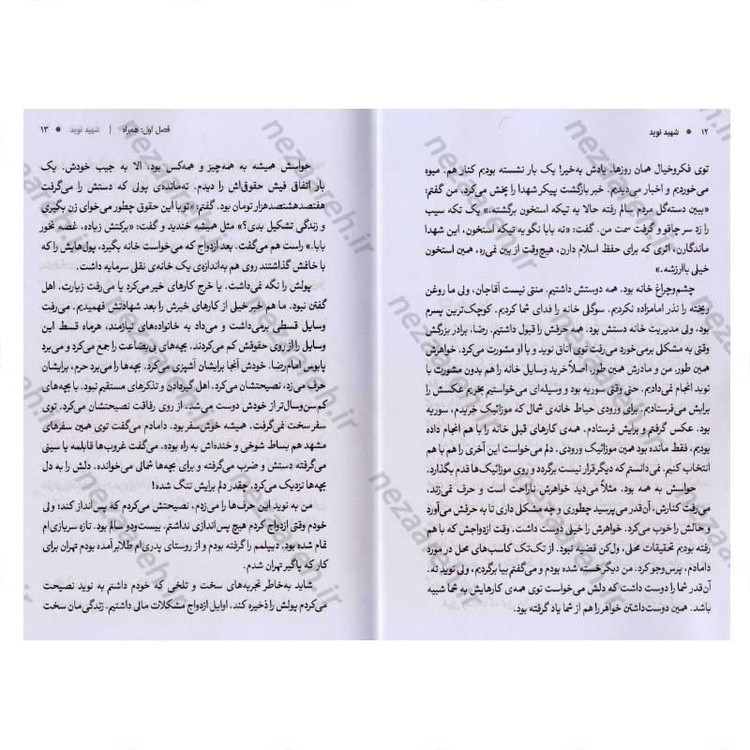 ۱۲ ● شهید نوید
توی فکروخیال همان روزها، یادش به‌خیر! یک بار نشسته بودیم کنار هم. میوه
می‌خوردیم و اخبار می‌دیدیم. خبر بازگشت پیکر شهدا را پخش می‌کرد. من گفتم:
«ببین دسته‌گل مردم سالم رفته حالا یه تیکه استخون برگشته.» یک تکه سیب
را زد سر چاقو و گرفت سمت من. گفت: «نه بابا نگو یه تیکه استخون، این شهدا
ماندگارن، اثری که برای حفظ اسلام دارن، هیچ‌وقت از بین نمی‌ره. همین استخون
خیلی باارزشه.»
چشم‌وچراغ خانه بود. همه دوستش داشتیم. منتی نیست آقاجان، ولی ما روغن
ریخته را نذر امامزاده نکردیم. سوگلی خانه را فدای شما کردیم. کوچک‌ترین پسرم
بود، ولی مدیریت خانه دستش بود. همه حرفش را قبول داشتیم. رضا، برادر بزرگش
وقتی به مشکلی برمی‌خورد می‌رفت توی اتاق نوید و با او مشورت می‌کرد. خواهرش
همین طور. من و مادرش همین طور. اصلاً خرید وسایل خانه را هم بدون مشورت با
نوید انجام نمی‌دادیم. حتی وقتی سوریه بود و وسیله‌ای می‌خواستیم بخریم عکسش را
برایش می‌فرستادیم. برای ورودی حیاط خانه‌ی شمال که موزائیک خریدم، سوریه
بود. عکس گرفتم و برایش فرستادم. همه‌ی کارهای قبلی خانه را هم انجام داده
بودیم، فقط مانده بود همین موزائیک ورودی. دلم می‌خواست این آخری را هم با هم
انتخاب کنیم. نمی‌دانستم که دیگر قرار نیست برگردد و روی موزائیک‌ها قدم بگذارد.
حواسش به همه بود. مثلاً می‌دید خواهرش ناراحت است و حرف نمی‌زند،
می‌رفت کنارش، آن‌قدر می‌پرسید چطوری و چه مشکلی داری تا به حرفش می‌آورد
و حالش را خوب می‌کرد. خواهرش را خیلی دوست داشت. وقت ازدواجش که با هم
رفته بودیم تحقیقات محلی، ول‌کن قضیه نبود. از تک‌تک کاسب‌های محل در مورد
دامادم، پرس‌وجو کرد. من دیگر خسته شده بودم و می‌گفتم بیا برگردیم، ولی نوید نه.
آن‌قدر شما را دوست داشت که دلش می‌خواست توی همه‌ی کارهایش به شما شبیه
باشد. همین دوست‌داشتن خواهر را هم از شما یاد گرفته بود.
فصل اول: همراه | شهید نوید ● ۱۳
حواسش همیشه به همه‌چیز و همه‌کس بود، الا به جیب خودش. یک
بار اتفاقی فیش حقوق‌اش را دیدم. ته‌مانده‌ی پولی که دستش را می‌گرفت
هفتصدهشتصدهزار تومان بود. گفتم: «تو با این حقوق چطور می‌خوای زن بگیری
و زندگی تشکیل بدی؟» مثل همیشه خندید و گفت: «برکتش زیاده، غصه نخور
بابا.» راست هم می‌گفت. بعد ازدواج که می‌خواست خانه بگیرد، پول‌هایش را که
با خانمش گذاشتند روی هم به‌اندازه‌ی یک خانه‌ی نقلی سرمایه داشت.
پولش را نگه نمی‌داشت. یا خرج کارهای خیر می‌کرد یا می‌رفت زیارت. اهل
گفتن نبود. ما هم خبر خیلی از کارهای خیرش را بعد شهادتش فهمیدیم. می‌رفت
وسایل قسطی برمی‌داشت و می‌داد به خانواده‌های نیازمند، هرماه قسط این
وسایل را از روی حقوقش کم می‌کردند. بچه‌های بی‌بضاعت را جمع می‌کرد و می‌برد
پابوس امام‌رضا. خودش آنجا برایشان آشپزی می‌کرد. بچه‌ها را می‌برد حرم، برایشان
حرف می‌زد، نصیحتشان می‌کرد. اهل گیردادن و تذکرهای مستقیم نبود. با بچه‌های
کم‌سن‌وسال‌تر از خودش دوست می‌شد، از روی رفاقت نصیحتشان می‌کرد. توی
سفر سخت نمی‌گرفت. همیشه خوش‌سفر بود. دامادم می‌گفت توی همین سفرهای
مشهد هم بساط شوخی و خنده‌اش به راه بوده. می‌گفت غروب‌ها قابلمه یا سینی
می‌گرفته دستش و ضرب می‌گرفته و برای بچه‌ها شمالی می‌خوانده. دلش را به دل
بچه‌ها نزدیک می‌کرد. چقدر دلم برایش تنگ شده!
من به نوید این حرف‌ها را می‌زدم، نصیحتش می‌کردم که پس‌انداز کند؛ ولی
خودم وقتی ازدواج کردم هیچ پس‌اندازی نداشتم. بیست‌ودو سالم بود. تازه سربازی‌ام
تمام شده بود. دیپلمم را گرفته بودم و از روستای پدری‌ام طلابرآمده بودم تهران برای
کار که پاگیر تهران شدم.
شاید به‌خاطر تجربه‌های سخت و تلخی که خودم داشتم به نوید نصیحت
می‌کردم پولش را ذخیره کند. اوایل ازدواج مشکلات مالی داشتیم. زندگی‌مان سخت
nezaarneh.ir